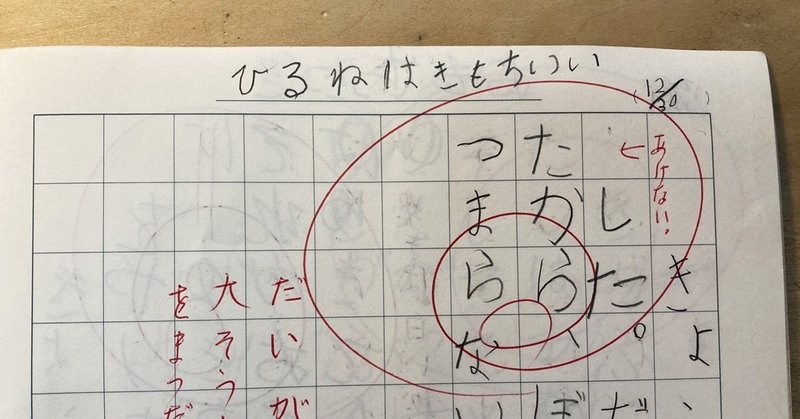 ひるねはきもちいい
(12/30)
あけない。
きよ
した。だ
たから、ぼ
つまらない
だいが
大そう
をまつだ